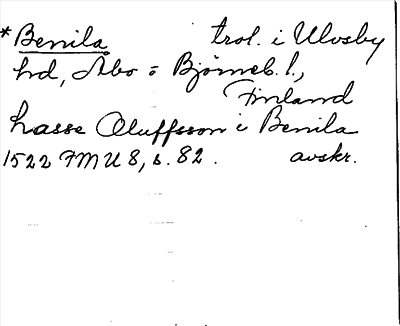 *Benila trol. i Ulvsby
hd, Åbo o Björneb. l.,
Finland
Lasse Oluffsson i Benila
1522 FMU 8, s. 82. avskr.